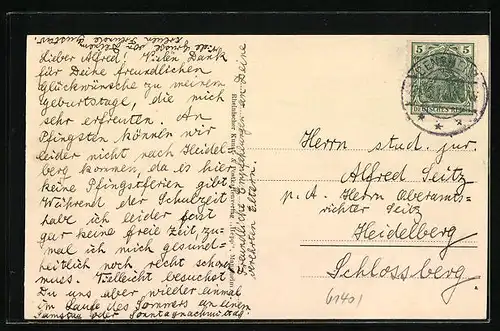 Lieber Alfred! Vielen Dank
für Deine freundlichen
Glückwünsche zu meinem
Geburtstage, die mich
sehr erfreuten. An
Pfingsten können wir
leider nicht nach Heidel-
berg kommen, da es hier
keine Pfingstferien gibt.
Während der Schulzeit
habe ich leider fast
gar keine freie Zeit, zu-
mal ich mich gesund-
heitlich noch recht schonen
muss. Vielleicht besuchst
Du uns aber wieder einmal
im Laufe des Sommers an einem
Samstag oder Sonntagnachmittag.
Viele Grüsse von Deinem
Freunde Gustav.
Freundliche Empfehlungen an Deine
werten Eltern.
Rheinischer Kunst- & Postkartenverlag
5 5
DEUTSCHES REICH
Herrn stud. jur.
Alfred Seitz
p. A. Herrn Oberamts-
richter Seitz
Heidelberg
Schlossberg.
61401